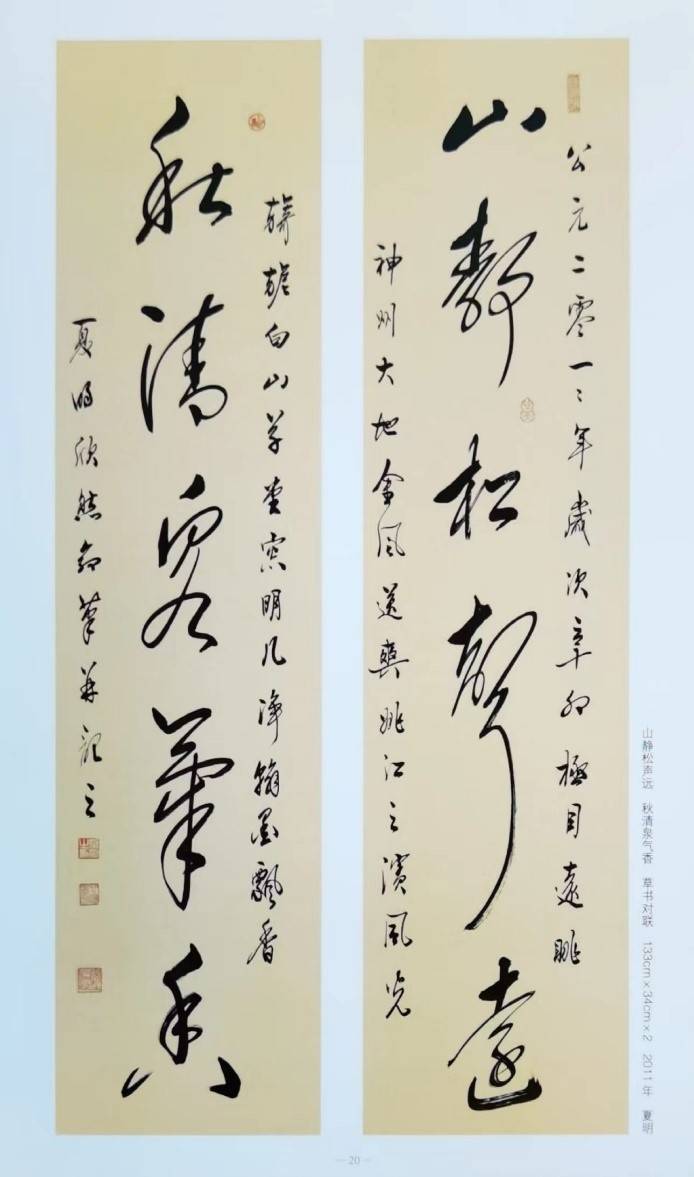 公元二零一一年歲次辛卯極目遠眺
山靜松聲遠
神州大地金風送爽姚江之濱風光
旖旎白山草堂窗明几淨翰墨飄香
秋清泉氣香
夏明欣然命筆并記之
山静松声远 秋清泉气香 草书对联 133cm×34cm×2 2011年 夏明
—20—